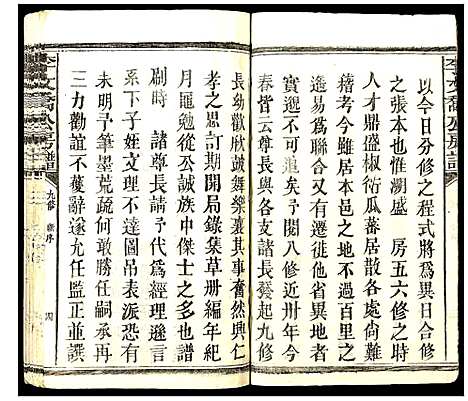 以今日分修之程式將為異日合修
之張本也惟溯盛 房五六修之時
人才鼎盛椒衍瓜蕃居散各處尚難
稽考今雖居本邑亦不過百里之
遙易為聯合或有遷徙他省異地者
不一可追矣予閑近卅年今
春吉支諸長發起九修
長幼歡欣鼓舞樂襄其事奮然興仁
孝之思訂期開局錄集草册編年紀
月匯勉從公誠族中傑士之多也譜
刷時 諸尊長請予代為經理遜言
下士子姪文理不達圖吊表派恐有
未明予筆墨荒疏何敢勝任嗣承再
三力勸誼不獲辭遂允任監正並譔
李文裔公房譜
九修 序
四